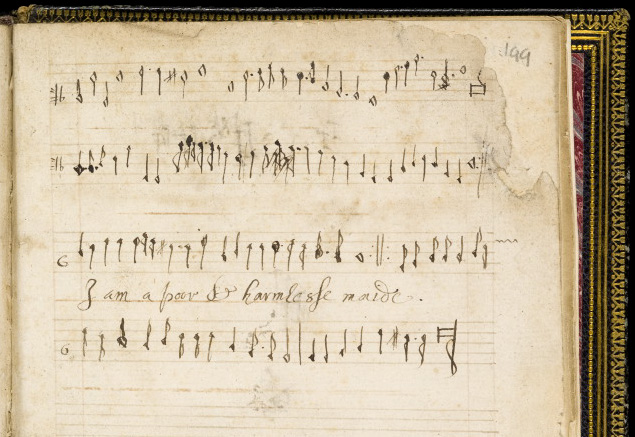 199
I am a poor & harmlesse maide.